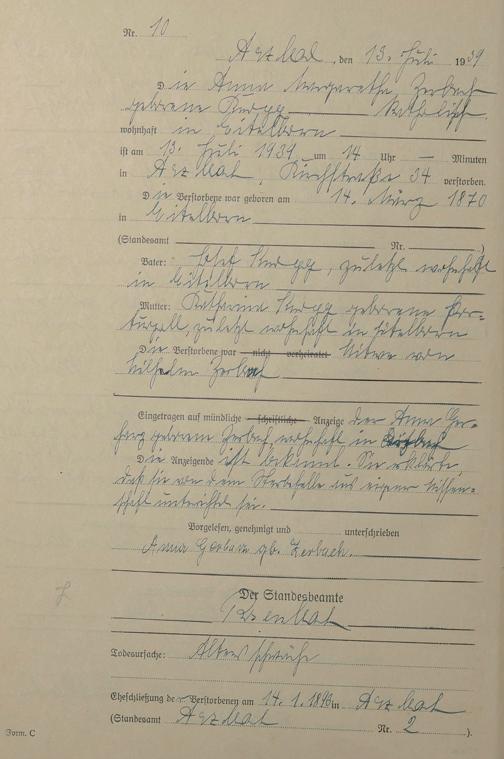 Nr. 10
Arzbach, den 13. Juli 1939
Die Anna Margaretha Zerbach
geborene Knopp katholisch
wohnhaft in Eitelborn
ist am 13. Juli 1939 um 14 Uhr — Minuten
in Arzbach, Kirchstraße 34 verstorben.
Die Verstorbene war geboren am 14. März 1870
in Eitelborn
(Standesamt Nr. )
Vater: Josef Knopp, zuletzt wohnhaft
in Eitelborn
Mutter: Katharina Knopp geborene
zuletzt wohnhaft in Eitelborn
Die Verstorbene war nicht verheiratet Witwe von
Wilhelm Zerbach
Eingetragen auf mündliche schriftliche Anzeige der Anna
geborene Zerbach, wohnhaft in Arzbach
Die Anzeigende ist bekannt. Sie erklärte,
daß sie von dem Sterbefalle aus eigener Wissen-
schaft unterrichtet sei.
Vorgelesen, genehmigt und unterschrieben
Anna gb. Zerbach.
Der Standesbeamte
Todesursache: Altersschwäche
Eheschließung der Verstorbenen am 14. 1. in Arzbach
(Standesamt Arzbach Nr. 2 ).
Form. C